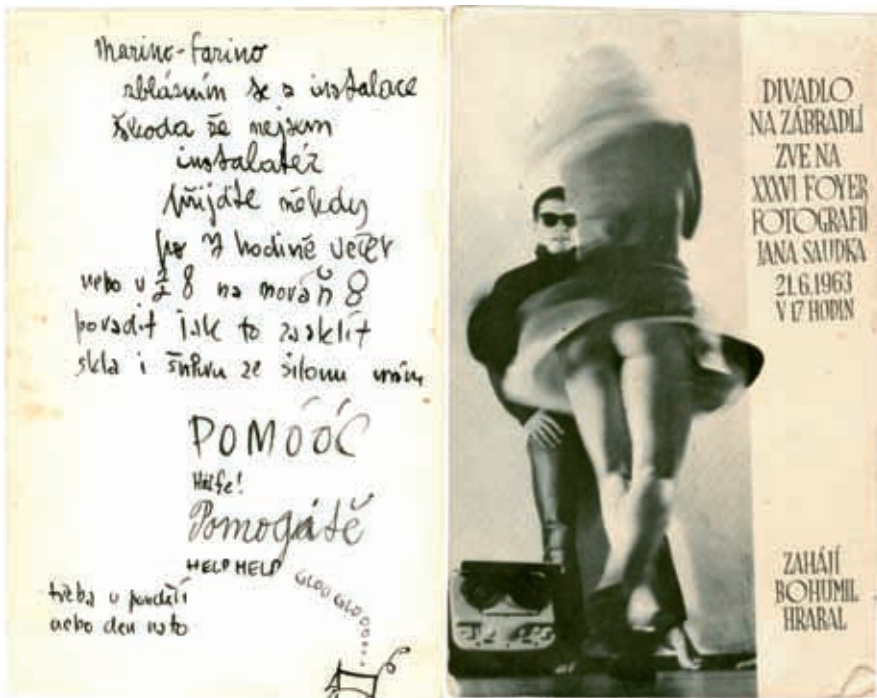 Marino-farino
zblázním se z instalace
škoda že nejsem
instalatér
přijďte někdy
po 7 hodině večer
nebo v ½ 8 na
poradit jak to zasklít
skla i šňůru ze silonu mám
POMÓÓC
Hilfe!
Pomogátě
HELP HELP
GLOO GLOO
třeba v pondělí
nebo den na to
DIVADLO
NA ZÁBRADLÍ
ZVE NA
XXXVI FOYER
FOTOGRAFIÍ
JANA SAUDKA
21.6.1963
V 17 HODIN
ZAHÁJÍ
BOHUMIL
HRABAL